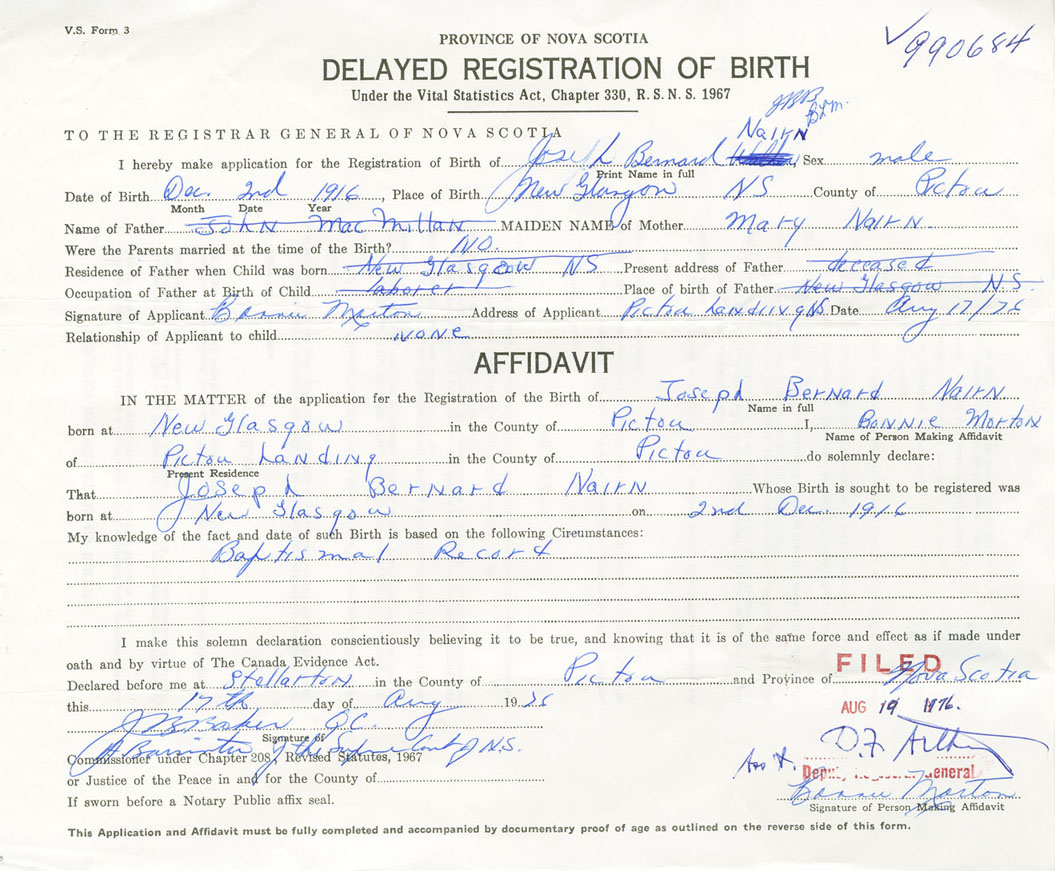 V.S. Form 3
✓990684
PROVINCE OF NOVA SCOTIA
DELAYED REGISTRATION OF BIRTH
Under the Vital Statistics Act, Chapter 330, R. S. N. S. 1967
JBB
BLM.
TO THE REGISTRAR GENERAL OF NOVA SCOTIA
Nairn
I hereby make application for the Registration of Birth of Joseph Bernard Sex male
Print Name in full
Date of Birth Dec. 2nd 1916, Place of Birth New Glasgow NS County of Pictou
Month Date Year
Name of Father John MacMillan MAIDEN NAME of Mother Mary Nairn
Were the Parents married at the time of the Birth? NO.
Residence of Father when Child was born New Glasgow NS Present address of Father deceased
Occupation of Father at Birth of Child laborer Place of birth of Father New Glasgow N.S.
Signature of Applicant Bonnie Morton Address of Applicant Pictou Landing NS. Date Aug 17/76
Relationship of Applicant to child none
AFFIDAVIT
IN THE MATTER of the application for the Registration of the Birth of Joseph Bernard Nairn
Name in full
born at New Glasgow in the County of Pictou I, Bonnie Morton
Name of Person Making Affidavit
of Pictou Landing in the County of Pictou do solemnly declare:
Present Residence
That Joseph Bernard Nairn Whose Birth is sought to be registered was
born at New Glasgow on 2nd Dec. 1916
My knowledge of the fact and date of such Birth is based on the following Circumstances:
Baptismal Record
I make this solemn declaration conscientiously believing it to be true, and knowing that it is of the same force and effect as if made under
oath and by virtue of The Canada Evidence Act.
FILED
Declared before me at Stellarton in the County of Pictou and Province of Nova Scotia
this 17th day of Aug 1976
AUG 19 1976.
Q.C.
Signature of
A Barrister of the Supreme Court of N.S.
Commissioner under Chapter 208, Revised Statutes, 1967
D.F.
Deputy Registrar General
or Justice of the Peace in and for the County of
Bonnie Morton
If sworn before a Notary Public affix seal.
Signature of Person Making Affidavit
This Application and Affidavit must be fully completed and accompanied by documentary proof of age as outlined on the reverse side of this form.